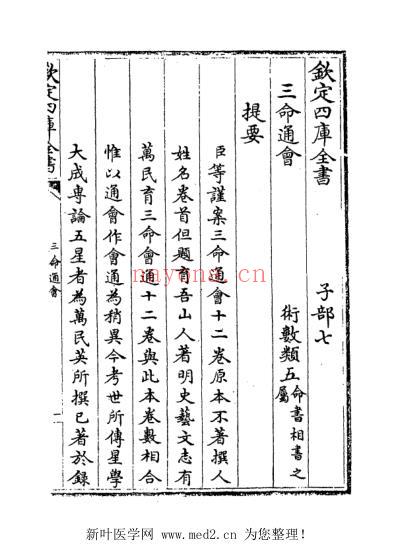 欽定四庫全書
子部七
三命通會
術數類五命書相書之屬
提要
臣等謹案三命通會十二卷原本不著撰人
姓名卷首但題育吾山人著明史藝文志有
萬民育三命會通十二卷與此本卷數相合
惟以通會作會通為稍異今考世所傳星學
大成專論五星者為萬民英所撰已著於錄
欽定四庫全書
三命通會
一
nayona.cn
新叶医学网 www.med2.cn 为您整理！